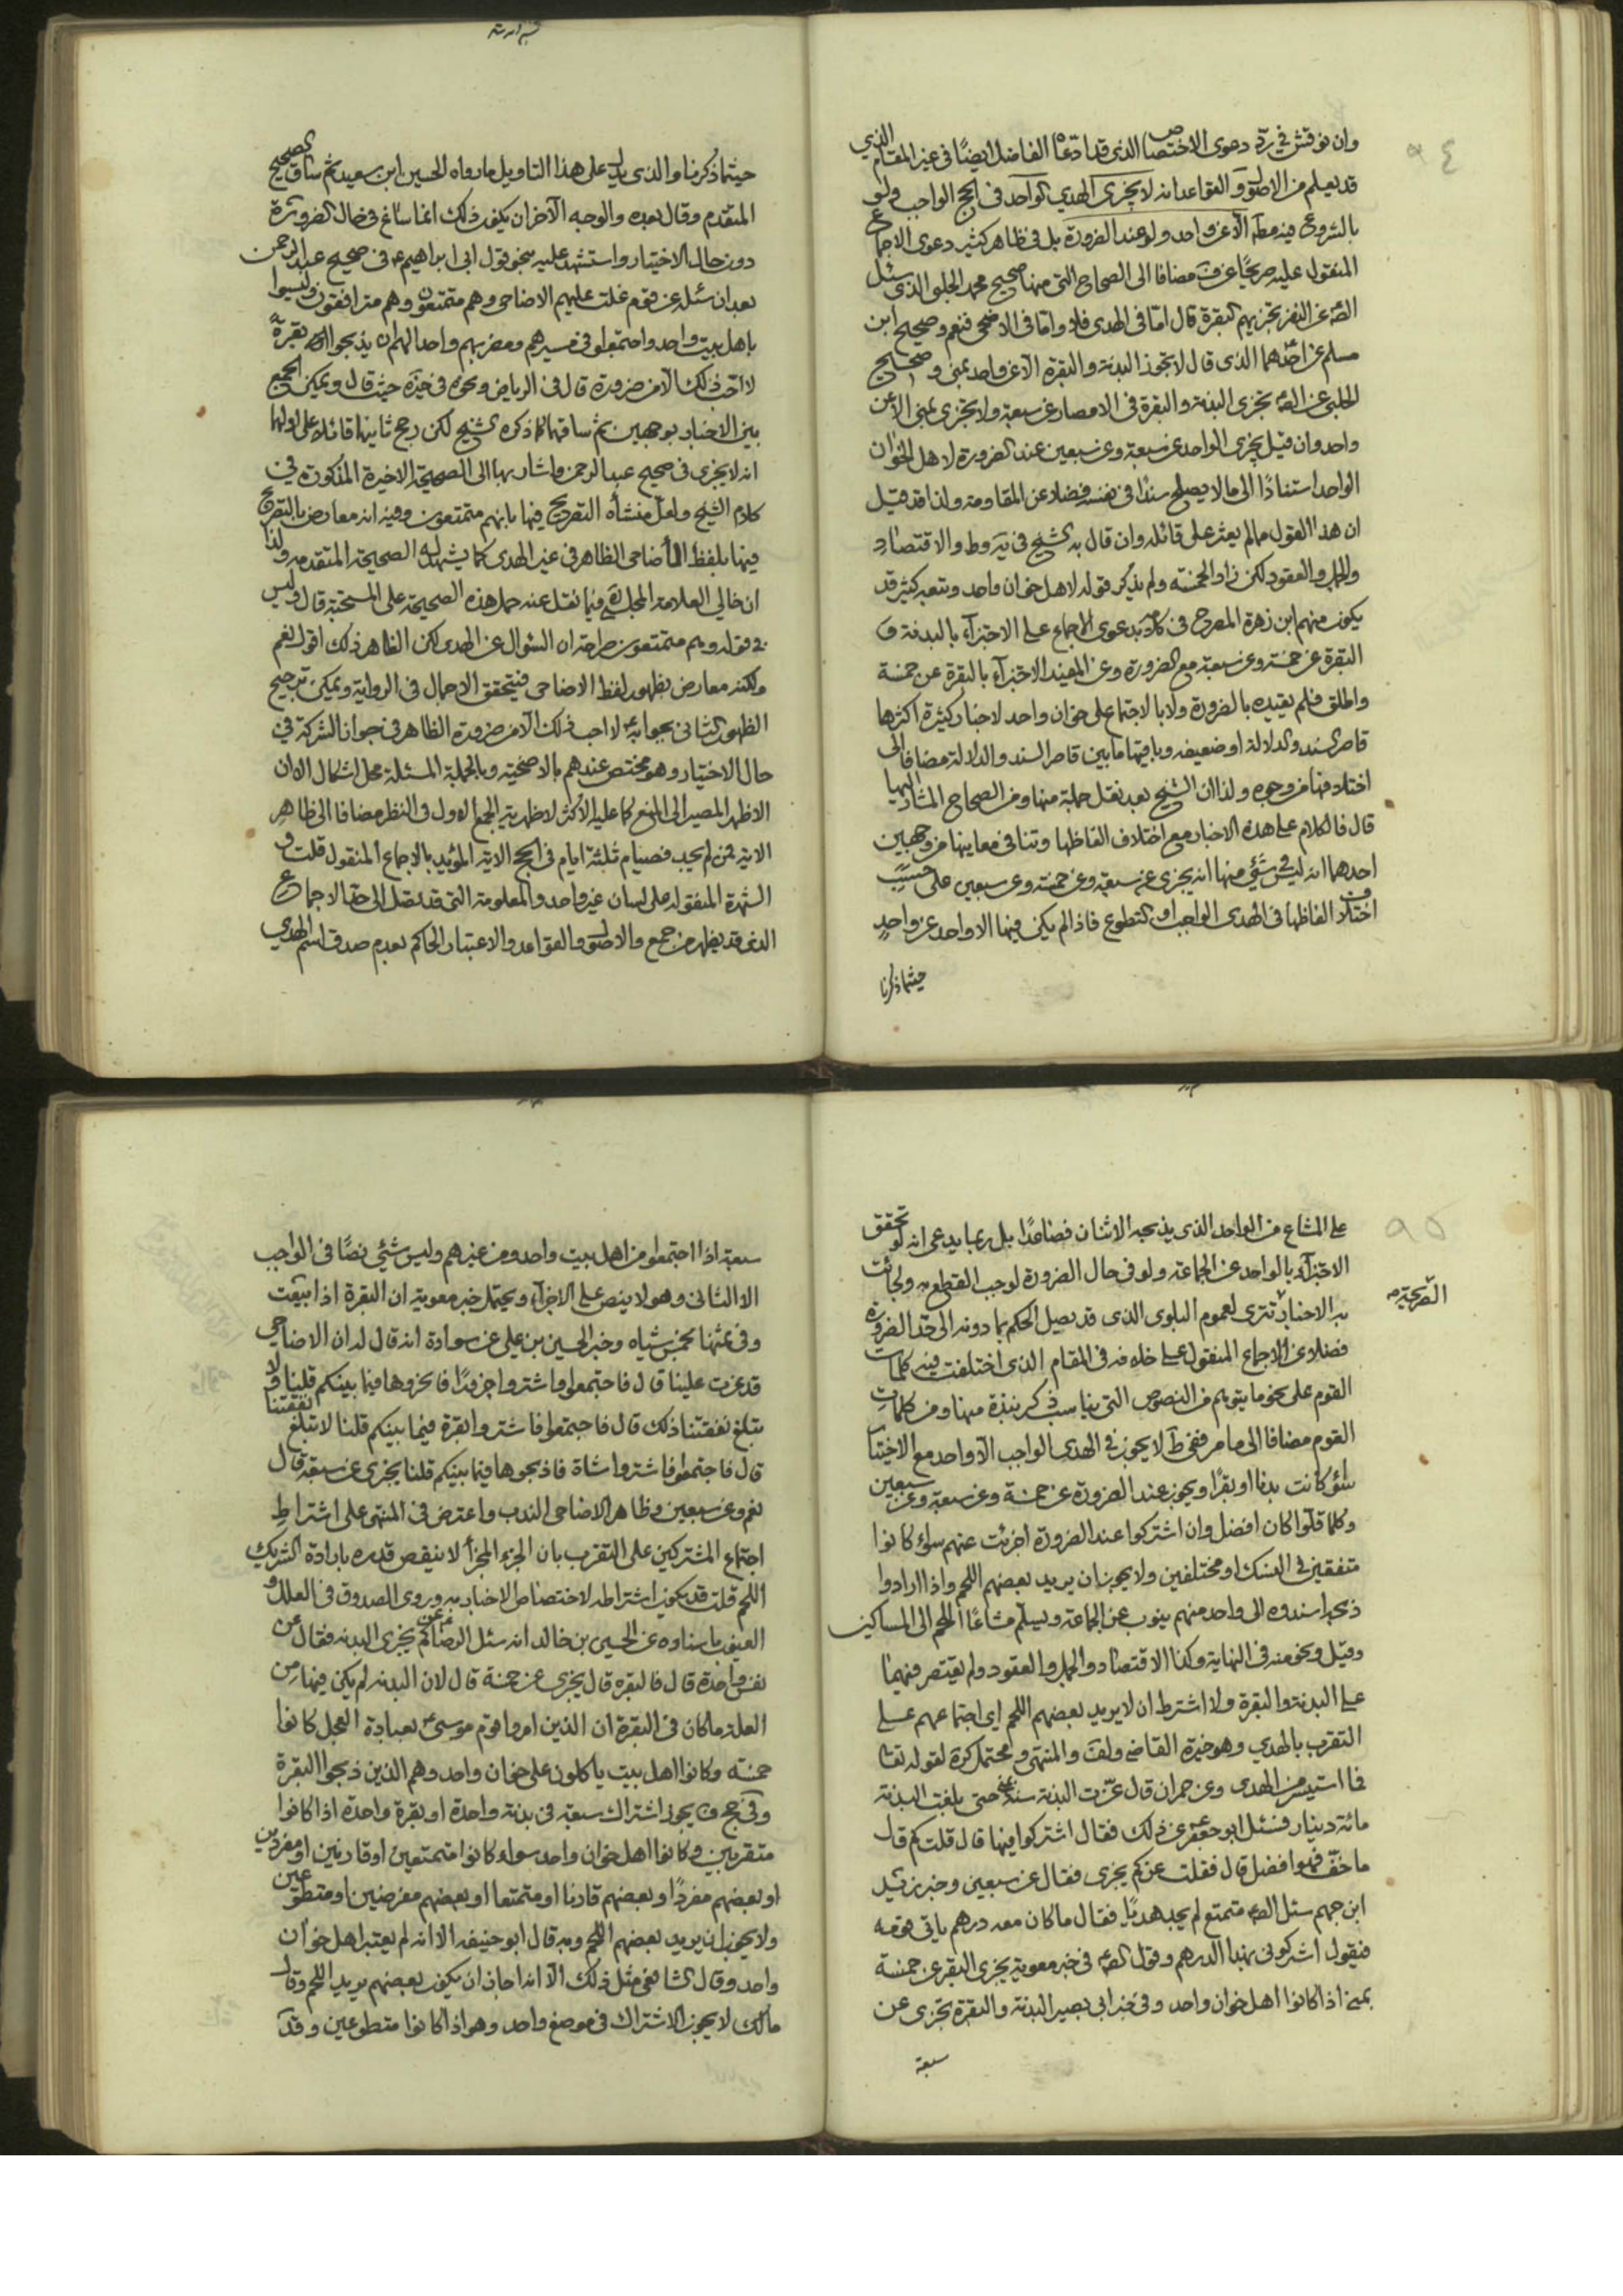 ٩٤
وان نوقش في ردّ دعوى الاختصاص الذى قد ادّعاه الفاضل ايضًا فى غير المقام الذي
قد يعلم من الاصل و القواعد انه لا يجزى الهدي الواحد فى الحج الواجب ولو
بالشروع فيه مط الا عن واحد ولو عند الضرورة بل فى ظاهر كثير دعوى الاجماع
المنقول عليه صريحًا عن ف مضافا الى الصحاح التى منها صحيح محمد الحلبى الذى سئل
الصه عن النفر تجزيهم البقرة قال امّا فى الهدى فلا و امّا فى الاضحى فنعم و صحيح ابن
مسلم عن احدهما الذى قال لا تجوز البدنة والبقرة الا عن واحد بمنى و صحيح
الحلبى عن الصه تجزى البدنة والبقرة فى الامصار عن سبعة ولا تجزى بمنى الا عن
واحد وان قيل يجزى الواحد عن سبعة وعن سبعين عند الضرورة لاهل الخوان
الواحد استنادًا الى ما لا يصلح سندًا فى نفسه فضلا عن المقاومة ولذا قد قيل
ان هذا القول مما لم يعثر على قائله وان قال به الشيخ فى يه وط والاقتصاد
والجمل والعقود لكن زاد الخمسة ولم يذكر قوله لاهل خوان واحد وتبعه كثير قد
يكون منهم ابن زهرة المصرح فى كلامه بدعوى الاجماع على الاجتزآء بالبدنة و
البقرة عن خمسة وعن سبعة مع الضرورة وعن المفيد الاجتزآء بالبقرة عن خمسة
واطلق فلم يقيده بالضرورة ولا بالاجتماع على خوان واحد لاخبار كثيرة اكثرها
قاصر السند والدلالة او ضعيفه وباقيها ما بين قاصر السند والدلالة مضافا الى
اختلافها من وجوه ولذا ان الشيخ بعد نقل جملة منها ومن الصحاح المشار اليها
قال فالكلام على هذه الاخبار مع اختلاف الفاظها وتنافى معاينها من وجهين
احدهما انه ليس فى شئ منها انه يجزى عن سبعة وعن خمسة وعن سبعين على حسب
اختلاف الفاظها فى الهدى الواجب او التطوع فاذا لم يكن فيها الا واحد عن واحدٍ
حيثما ذكرنا
حيثما ذكرنا والذى يدل على هذا التاويل ما رواه الحسين ابن سعيد ثم ساق الصحيح
المتقدم وقال بعده والوجه الآخر ان يكون ذلك انما ساغ فى حال الضرورة
دون حال الاختيار واستشهد عليه بنحو قول ابى ابراهيم ع فى صحيح عبد الرحمن
بعد ان سئله عن قوم غلت عليهم الاضاحى وهم متمتعون وهم مترافقون وليسوا
باهل بيت واحد واجتمعوا فى مسيرهم ومضربهم واحد الهم ان يذبحوا بقرة
لا احب ذلك الا من ضرورة قال فى الرياض ونحوه فى خيره حيث قال ويمكن الجمع
بين الاخبار بوجهين ثم ساقهما كما ذكره الشيخ لكن رجح ثانيهما قائلا على اولهما
انه لا يجزى فى صحيح عبد الرحمن واشار بها الى الصحيحة الاخيرة المذكورة فى
كلام الشيخ ولعل منشأه التصريح فيها بانهم متمتعون وفيه انه معارض بالتصريح
فيها بلفظ الأضاحى الظاهر فى غير الهدى كما يشهد له الصحيحة المتقدمه ولذا
ان خالي العلامة المجلسى فيما نقل عنه حمل هذه الصحيحة على المستحبة قال وليس
فى قوله وهم متمتعون صراحة ان السؤال عن الهدى لكن الظاهر ذلك اقول نعم
ولكنه معارض بظهور لفظ الاضاحى فيتحقق الاجمال فى الرواية ويمكن ترجيح
الظهور الثانى بجوابه لا احب ذلك الا من ضرورة الظاهر فى جواز الشركة فى
حال الاختيار وهو مختص عندهم بالاضحية وبالجملة المسئلة محل اشكال الا ان
الاظهر المصير الى المنع كما عليه الاكثر لاظهرية الجمع الاول فى النظر مضافا الى ظاهر
الاية فمن لم يجد فصيام ثلثة ايام فى الحج الاية المؤيد بالاجماع المنقول قلت و
الشهرة المنقوله على لسان غير واحد والمعلومة التى قد تصل الى حد الاجماع
الذى قد يظهر من جمع والاصل والقواعد والاعتبار الحاكم بعدم صدق اسم الهدي
٩٥
على المشاع من الواحد الذى يذبحه الاثنان فصاعدًا بل ربما يدعى انه لو تحقق
الاجتزآء بالواحد عن الجماعة ولو فى حال الضرورة لوجب القطع به ولجائت
به الاخبار تترى لعموم البلوى الذى قد يصل الحكم بما دونه الى حد الضرورة
فضلا عن الاجماع المنقول على خلافه فى المقام الذى اختلفت فيه كلمات
القوم على نحو ما يتوهم من النصوص التى يناسب ذكر نبذة منها ومن كلماتِ
القوم مضافا الى ما مر ففى ط لا يجوز فى الهدى الواجب الا واحد مع الاختيار
سئو كانت بدنا او بقرًا ويجوز عند الضرورة عن خمسة وعن سبعة وعن سبعين
وكلما قلّوا كان افضل وان اشتركوا عند الضرورة اجزئت عنهم سواء كانوا
متفقين فى النسك او مختلفين ولا يجوز ان يريد بعضهم اللحم واذا ارادوا
ذبحه اسندوه الى واحد منهم ينوب عن الجماعة ويسلم مشاعًا اللحم الى المساكين
وقيل ونحو منه فى النهاية وكذا الاقتصاد والجمل والعقود ولم يقتصر فيهما
على البدنة والبقرة ولا اشترط ان لا يريد بعضهم اللحم اى اجتماعهم على
التقرب بالهدي وهو خيرة القاضى ولف والمنتهى ومحتمل كرة لقوله تعا
فما استيسر من الهدى وعن حمران قال عزّت البدنة سنة حتى بلغت البدنة
مائة دينار فسئل ابو جعفر ع عن ذلك فقال اشتركوا فيها قال قلت كم قال
ما خفّ فهو افضل قال فقلت عن كم يجزى فقال عن سبعين وخبر زيد
ابن جهم سئل الصه متمتع لم يجد هديًا فقال ما كان معه درهم ياتى قومه
فيقول اشركونى بهذا الدرهم وقول الصه فى خبر معوية يجزى البقر عن خمسة
بمنى اذا كانوا اهل خوان واحد وفى خبر ابى بصير البدنة والبقرة تجزى عن
سبعة
سبعة اذا اجتمعوا من اهل بيت واحد ومن غيرهم وليس شئ نصًا فى الواجب
الا الثانى وهو لا ينص على الاجزآء ويحتمل خبر معوية ان البقرة اذا بيعت
وفى بثمنها بخمس شياه وخبر الحسين بن علي عن سوادة انه قال له ان الاضاحي
قد عزت علينا قال فاجتمعوا واشتروا جزورًا فانحروها فيما بينكم قلنا ولا
تبلغ نفقتنا ذلك قال فاجتمعوا فاشتروا بقرة فيما بينكم قلنا لا تبلغ نفقتنا
قال فاجتمعوا فاشتروا شاة فاذبحوها فيما بينكم قلنا يجزى عن سبعة قال
نعم وعن سبعين وظاهر الاضاحى الندب واعترض فى المنتهى على اشتراطِ
اجتماع المشتركين على التقرب بان الجزء المجزأ لا ينقص قدره بارادة الشريك
اللحم قلت قد يكون اشتراطه لاختصاص الاخبار به وروى الصدوق فى العلل و
العيون باسناده عن الحسين بن خالد انه سئل الرضا ع عن كم يجزى البدنه فقال عن
نفس واحدة قال فالبقره قال يجزى عن خمسة قال لان البدنه لم يكن فيها من
العلة ما كان فى البقرة ان الذين امروا قوم موسى ع بعبادة العجل كانوا
خمسه وكانوا اهل بيت ياكلون على خوان واحد وهم الذين ذبحوا البقرة
وفى حج ف يجوز اشتراك سبعة فى بدنة واحدة او بقرة واحدة اذا كانوا
متقربين وكانوا اهل خوان واحد سواء كانوا متمتعين او قارنين او مفردين
او بعضهم مفردًا وبعضهم قارنا او متمتعا او بعضهم مفترضين او متطوعين
ولا يجوز ان يريد بعضهم اللحم وبه قال ابو حنيفه الا انه لم يعتبر اهل خوان
واحد وقال الشافعى مثل ذلك الا انه اجاز ان يكون بعضهم يريد اللحم وقال
مالك لا يجوز الاشتراك فى موضع واحد وهو اذا كانوا متطوعين وقد